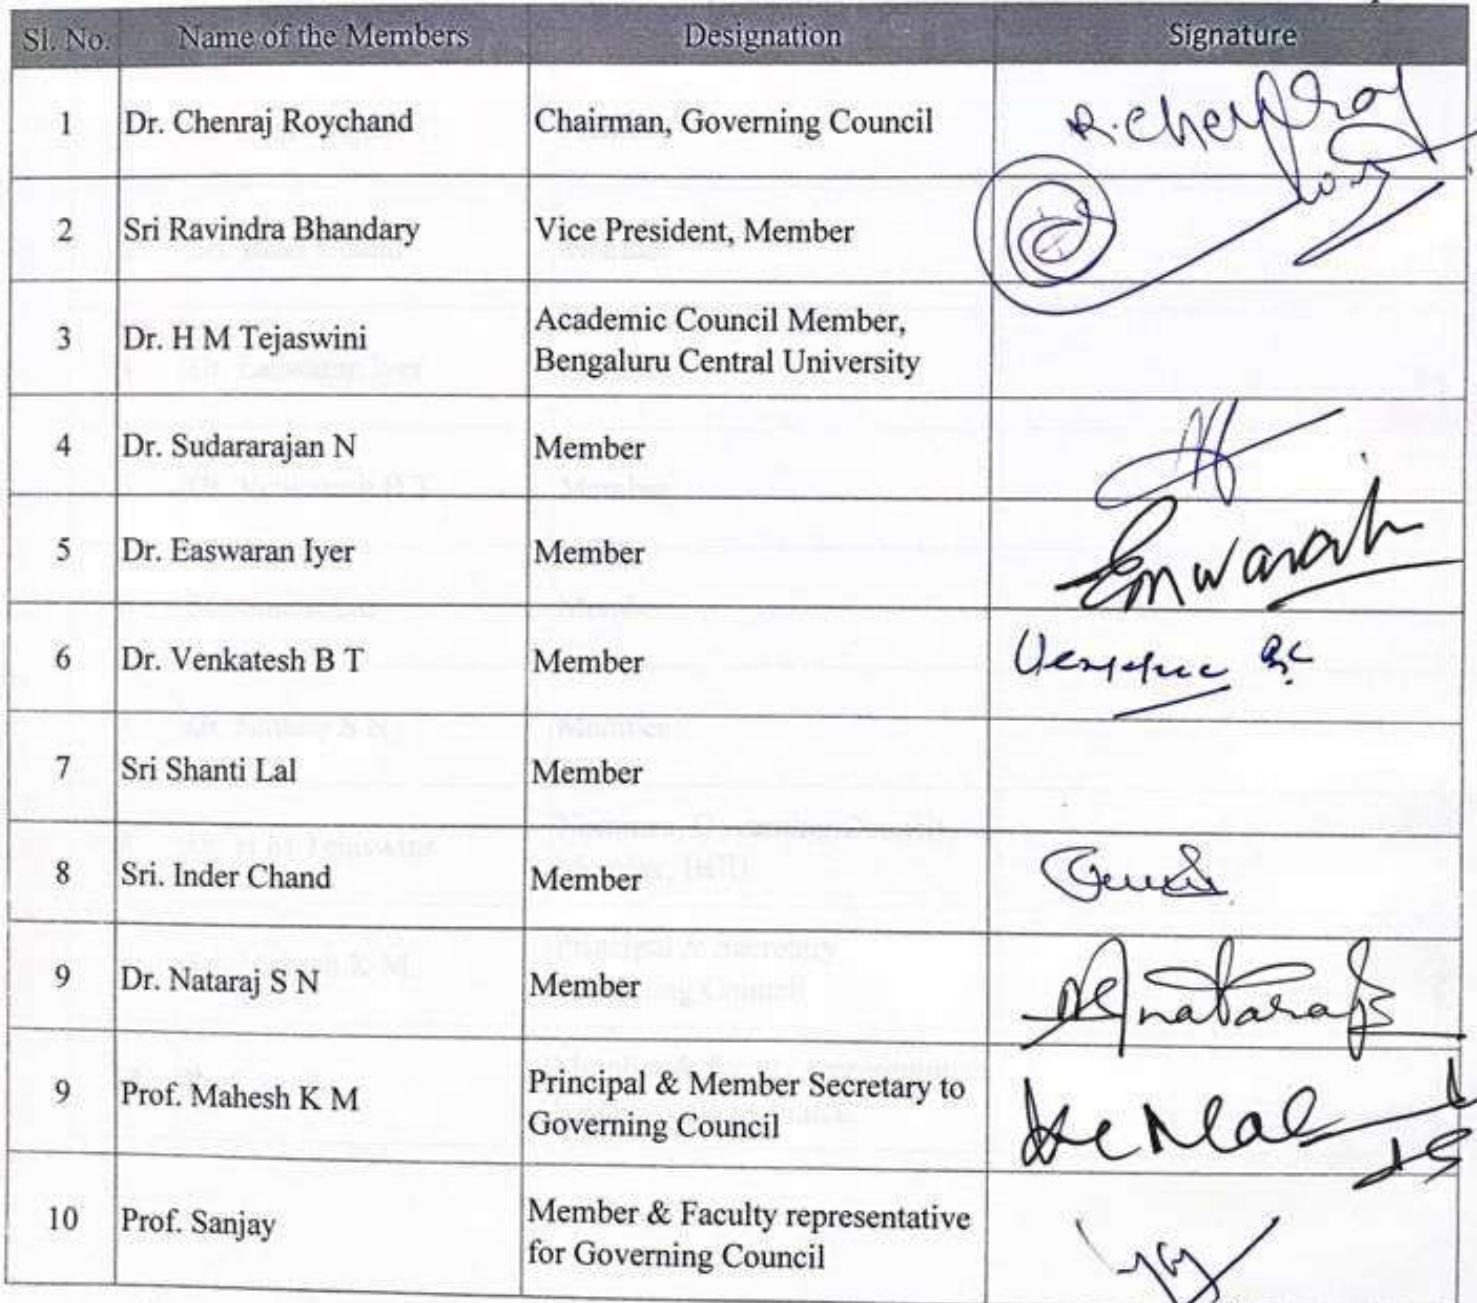 Sl. No. Name of the Members Designation Signature
1 Dr. Chenraj Roychand Chairman, Governing Council R. Chenraj
2 Sri Ravindra Bhandary Vice President, Member
3 Dr. H M Tejaswini Academic Council Member,
Bengaluru Central University
4 Dr. Sudararajan N Member
5 Dr. Easwaran Iyer Member
6 Dr. Venkatesh B T Member
7 Sri Shanti Lal Member
8 Sri. Inder Chand Member
9 Dr. Nataraj S N Member nataraj
9 Prof. Mahesh K M Principal & Member Secretary to
Governing Council
10 Prof. Sanjay Member & Faculty representative
for Governing Council